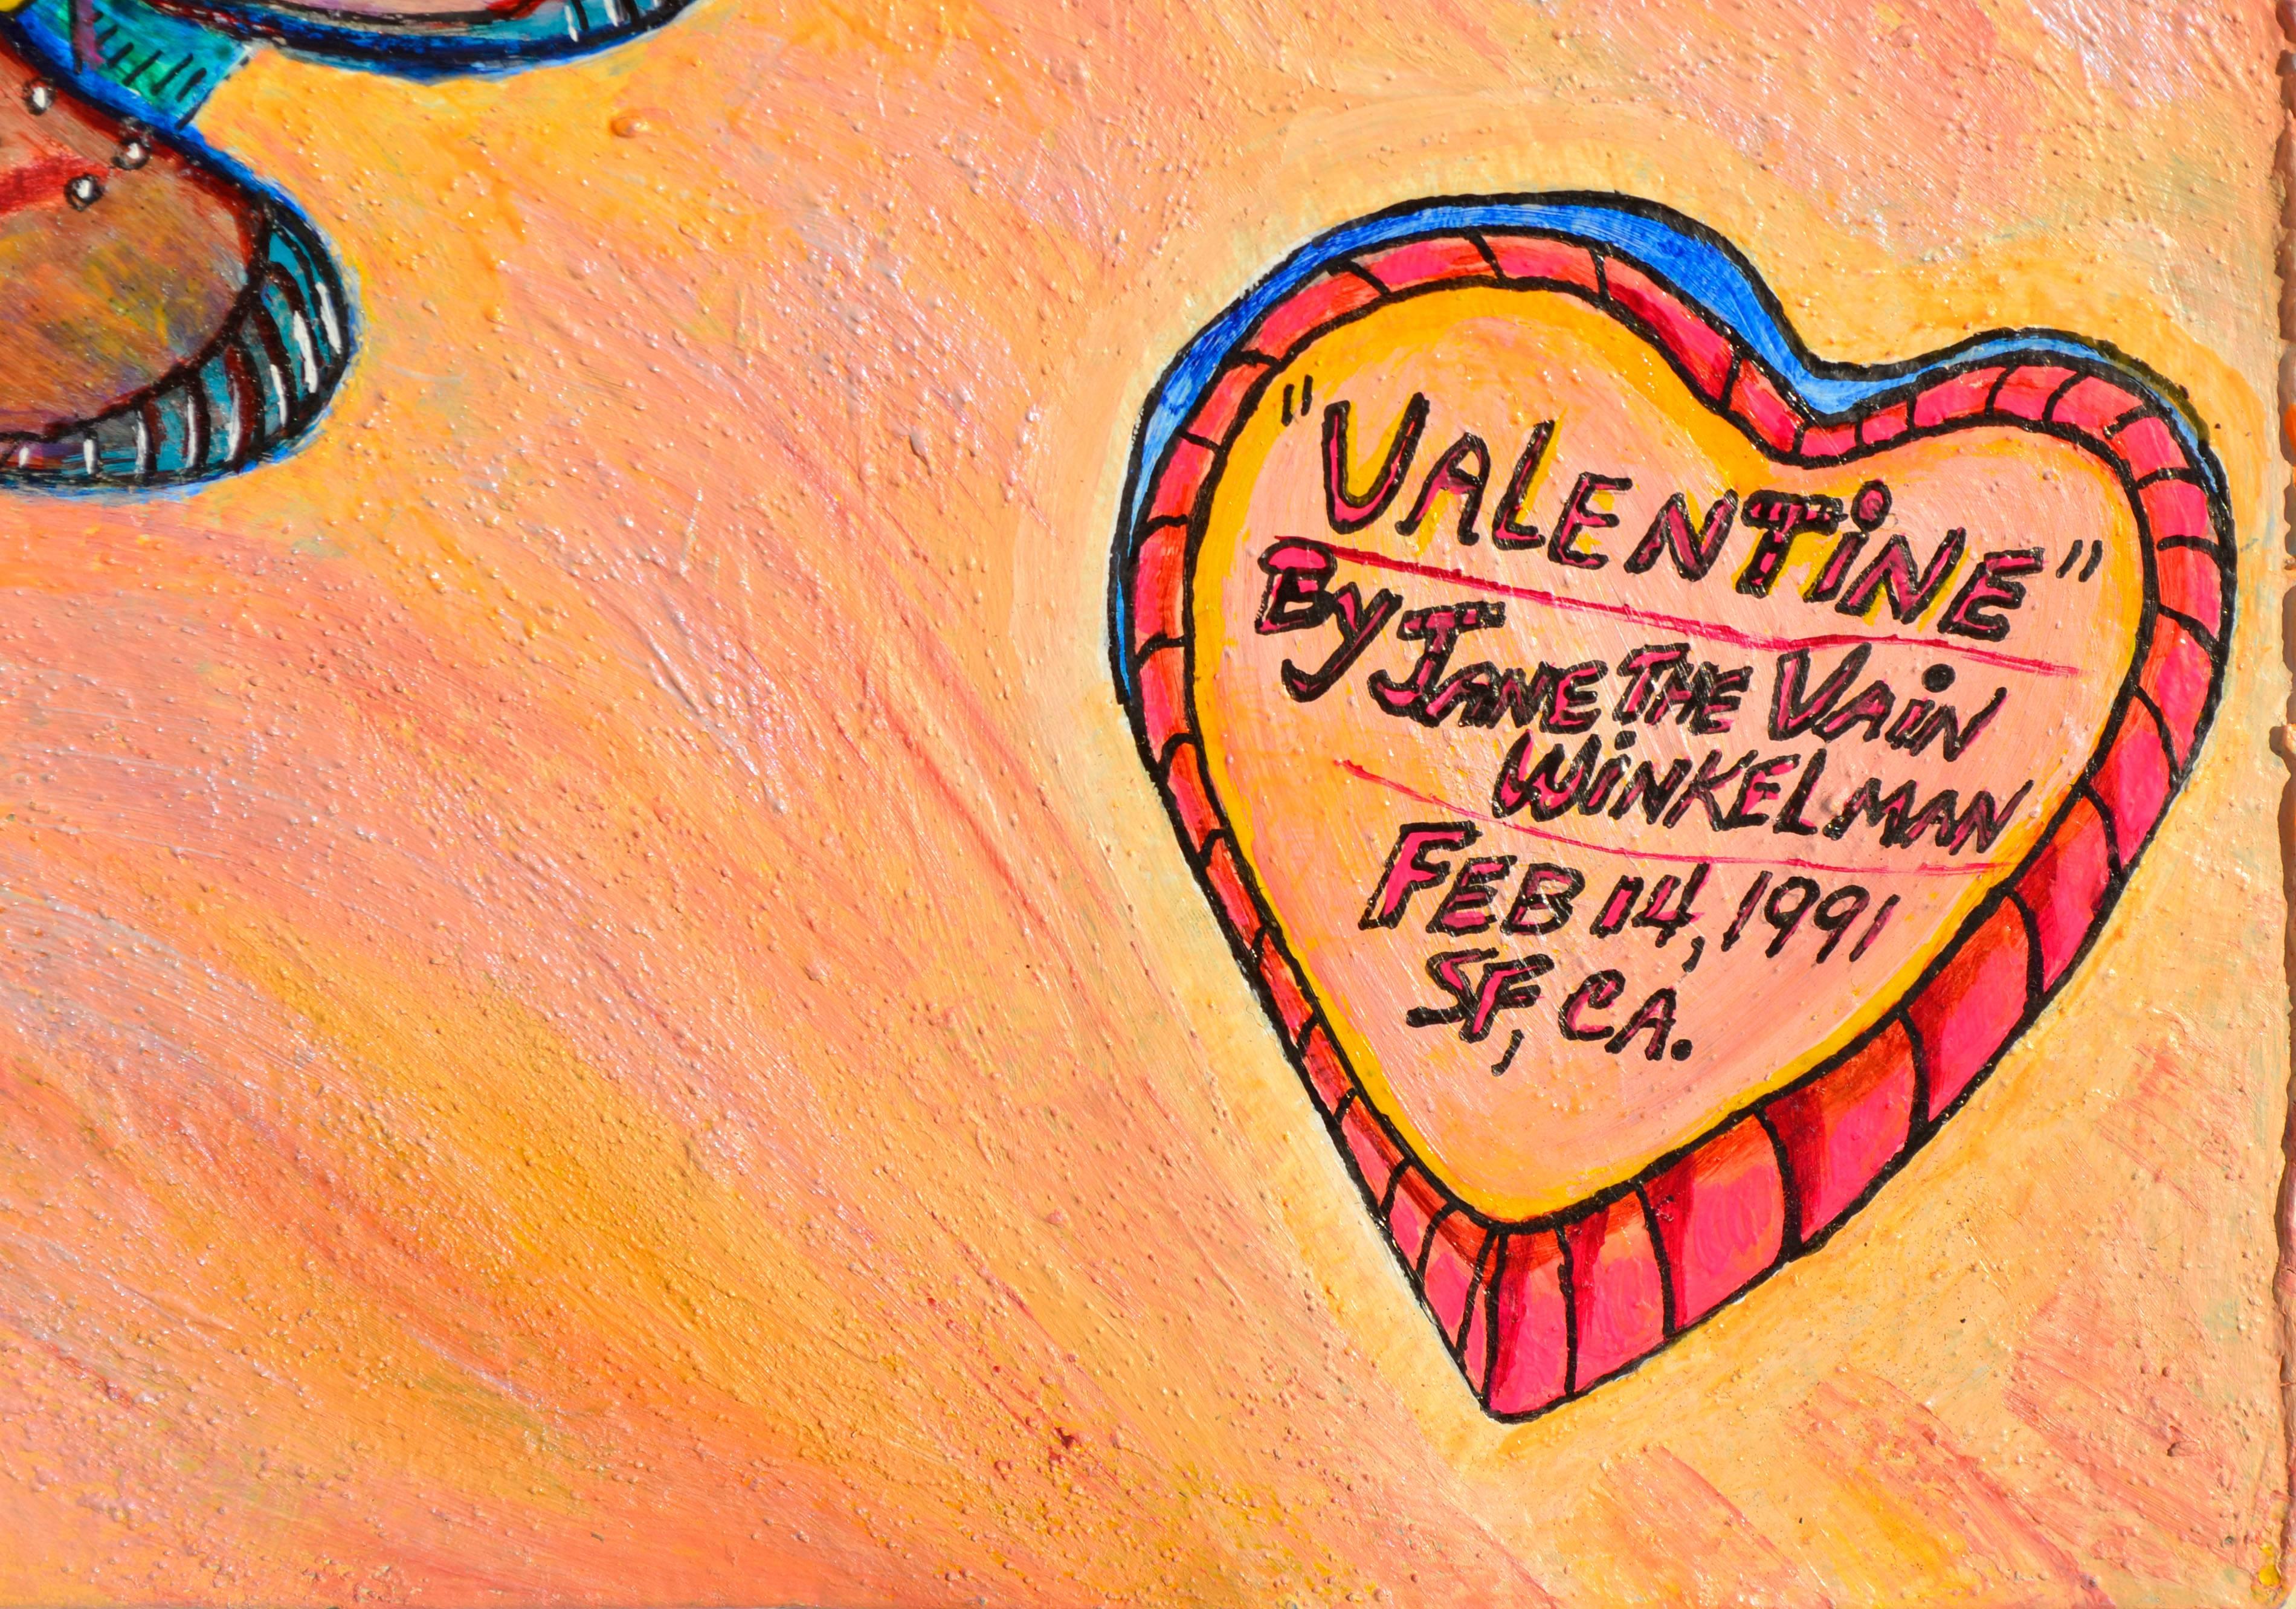 "VALENTINE"
By JANE THE VAiN
WiNKELMAN
FEB 14, 1991
SF, CA.